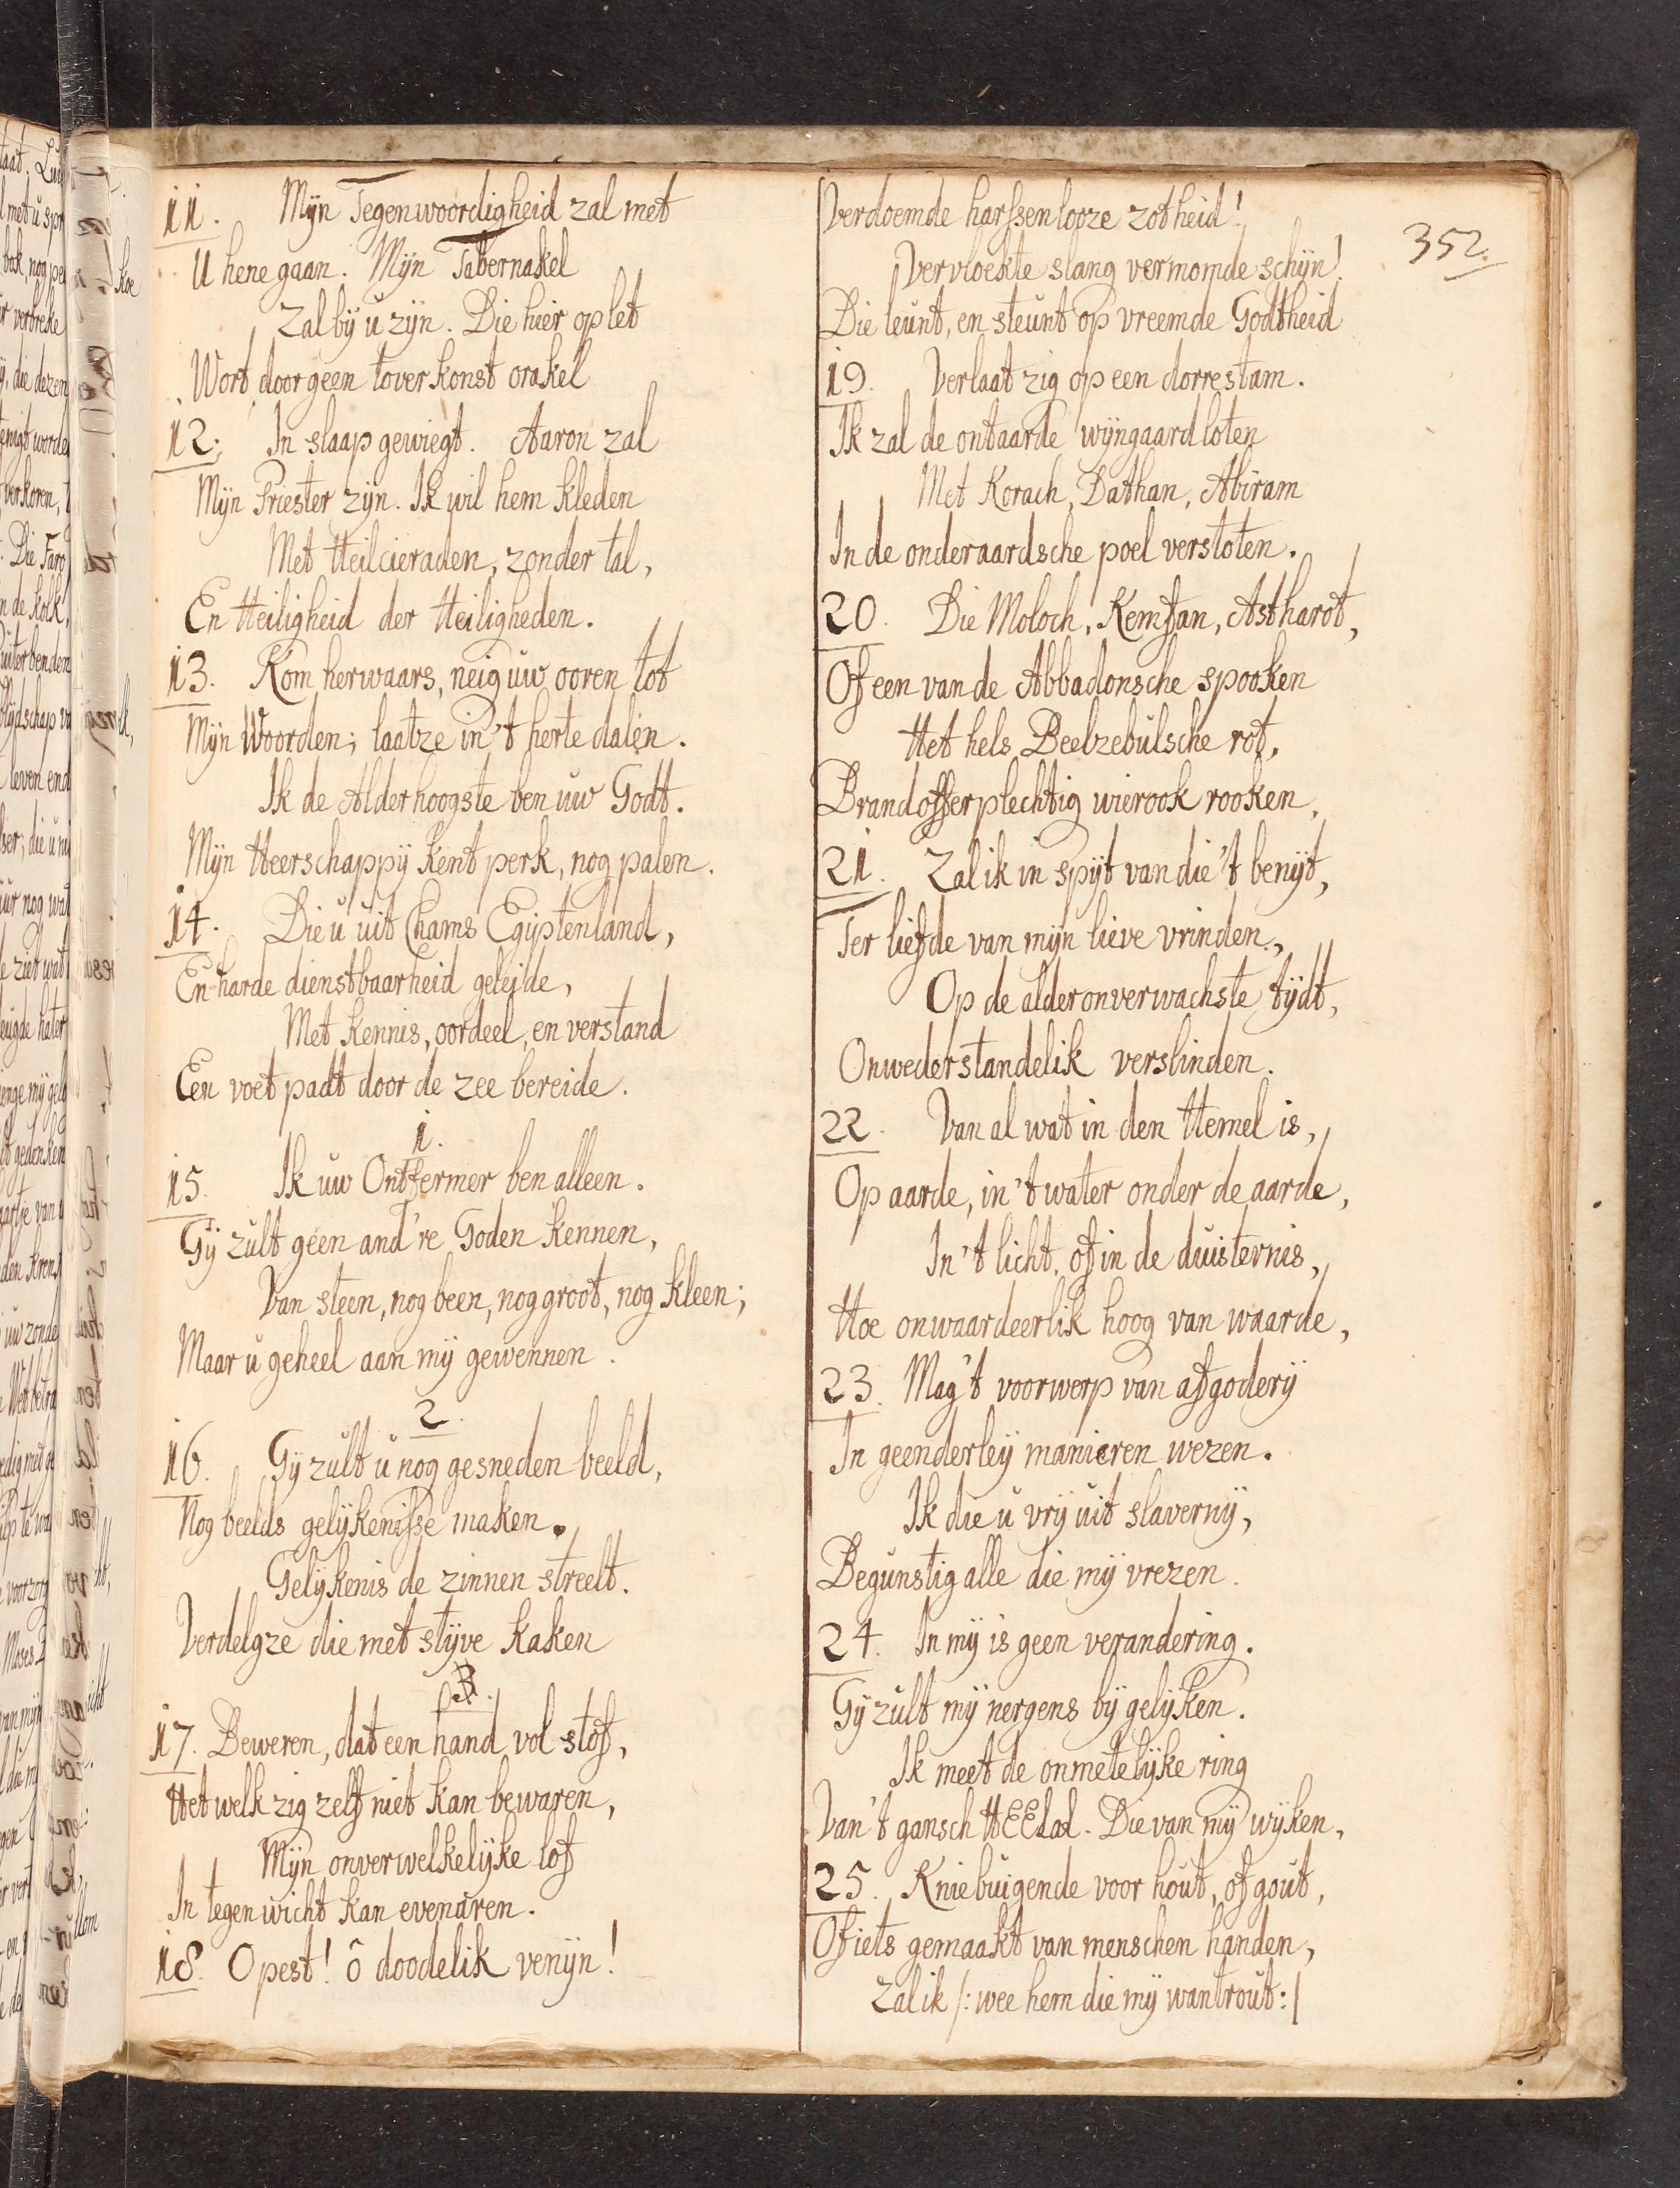 11. Mijn Tegenwoordigheid zal met
U hene gaan. Mijn Tabernakel
Zal bij u zijn. Die hier op let
Wort door geen toverkonst orakel
12. In slaap gewiegt. Aaron zal
Mijn Priester zijn. Ik wil hem kleden
Met Heilcieraden, zonder tal,
En Heiligheid der Heiligheden.
13. Kom herwaars, neig uw ooren tot
Mijn Woorden; laatze in't herte dalen.
Ik de Alderhoogste ben uw Godt.
Mijn Heerschappij kent perk, nog palen.
14. Die u uit Chams Egijptenland,
En harde dienstbaarheid geleide,
Met kennis, oordeel, en verstand
Een voetpadt door de zee bereide.
1.
15. Ik uw Ontfermer ben alleen.
Gij zult geen and're Goden kennen,
Van steen, nog been, nog groot, nog kleen;
Maar u geheel aan mij gewennen.
2.
16. Gij zult u nog gesneden beeld,
Nog beelds gelijkenisse maken.
Gelijkenis de zinnen streelt.
Verdelgze die met stijve kaken
17. Beweren, dat een hand vol stof,
Het welk zig zelf niet kan bewaren,
Mijn onverwelkelijke lof
In tegenwicht kan evenaren.
18. O pest! ô doodelik venijn!
Verdoemde harssenlooze zotheid!
Vervloekte slang vermomde schijn!
Die leunt, en steunt op vreemde Godtheid
19. Verlaat zig op een dorre stam.
Ik zal de ontaarde wijngaardloten
Met Korach, Dathan, Abiram
In de onderaardsche poel verstoten.
20. Die Moloch, Kemfan, Astharot,
Of een van de Abbadonsche spooken
Het hels Beelzebulsche rot,
Brandofferplechtig wierook rooken,
21. Zal ik in spijt van die't benijt,
Ter liefde van mijn lieve vrinden,
Op de alderonverwachste tijdt,
Onwederstandelik verslinden.
22. Van al wat in den Hemel is,
Op aarde, in't water onder de aarde,
In't licht, of in de duisternis,
Hoe onwaardeerlik hoog van waarde,
23. Mag't voorwerp van afgoderij
In geenderleij manieren wezen.
Ik die u vrij uit slavernij,
Begunstig alle die mij vrezen.
24. In mij is geen verandering.
Gij zult mij nergens bij gelijken.
Ik meet de onmetelijke ring
Van't gansch HEElal. Die van mij wijken,
25. Kniebuigende voor hout, of gout,
Of iets gemaakt van menschen handen,
Zal ik /: wee hem die mij wantrout: /
352.